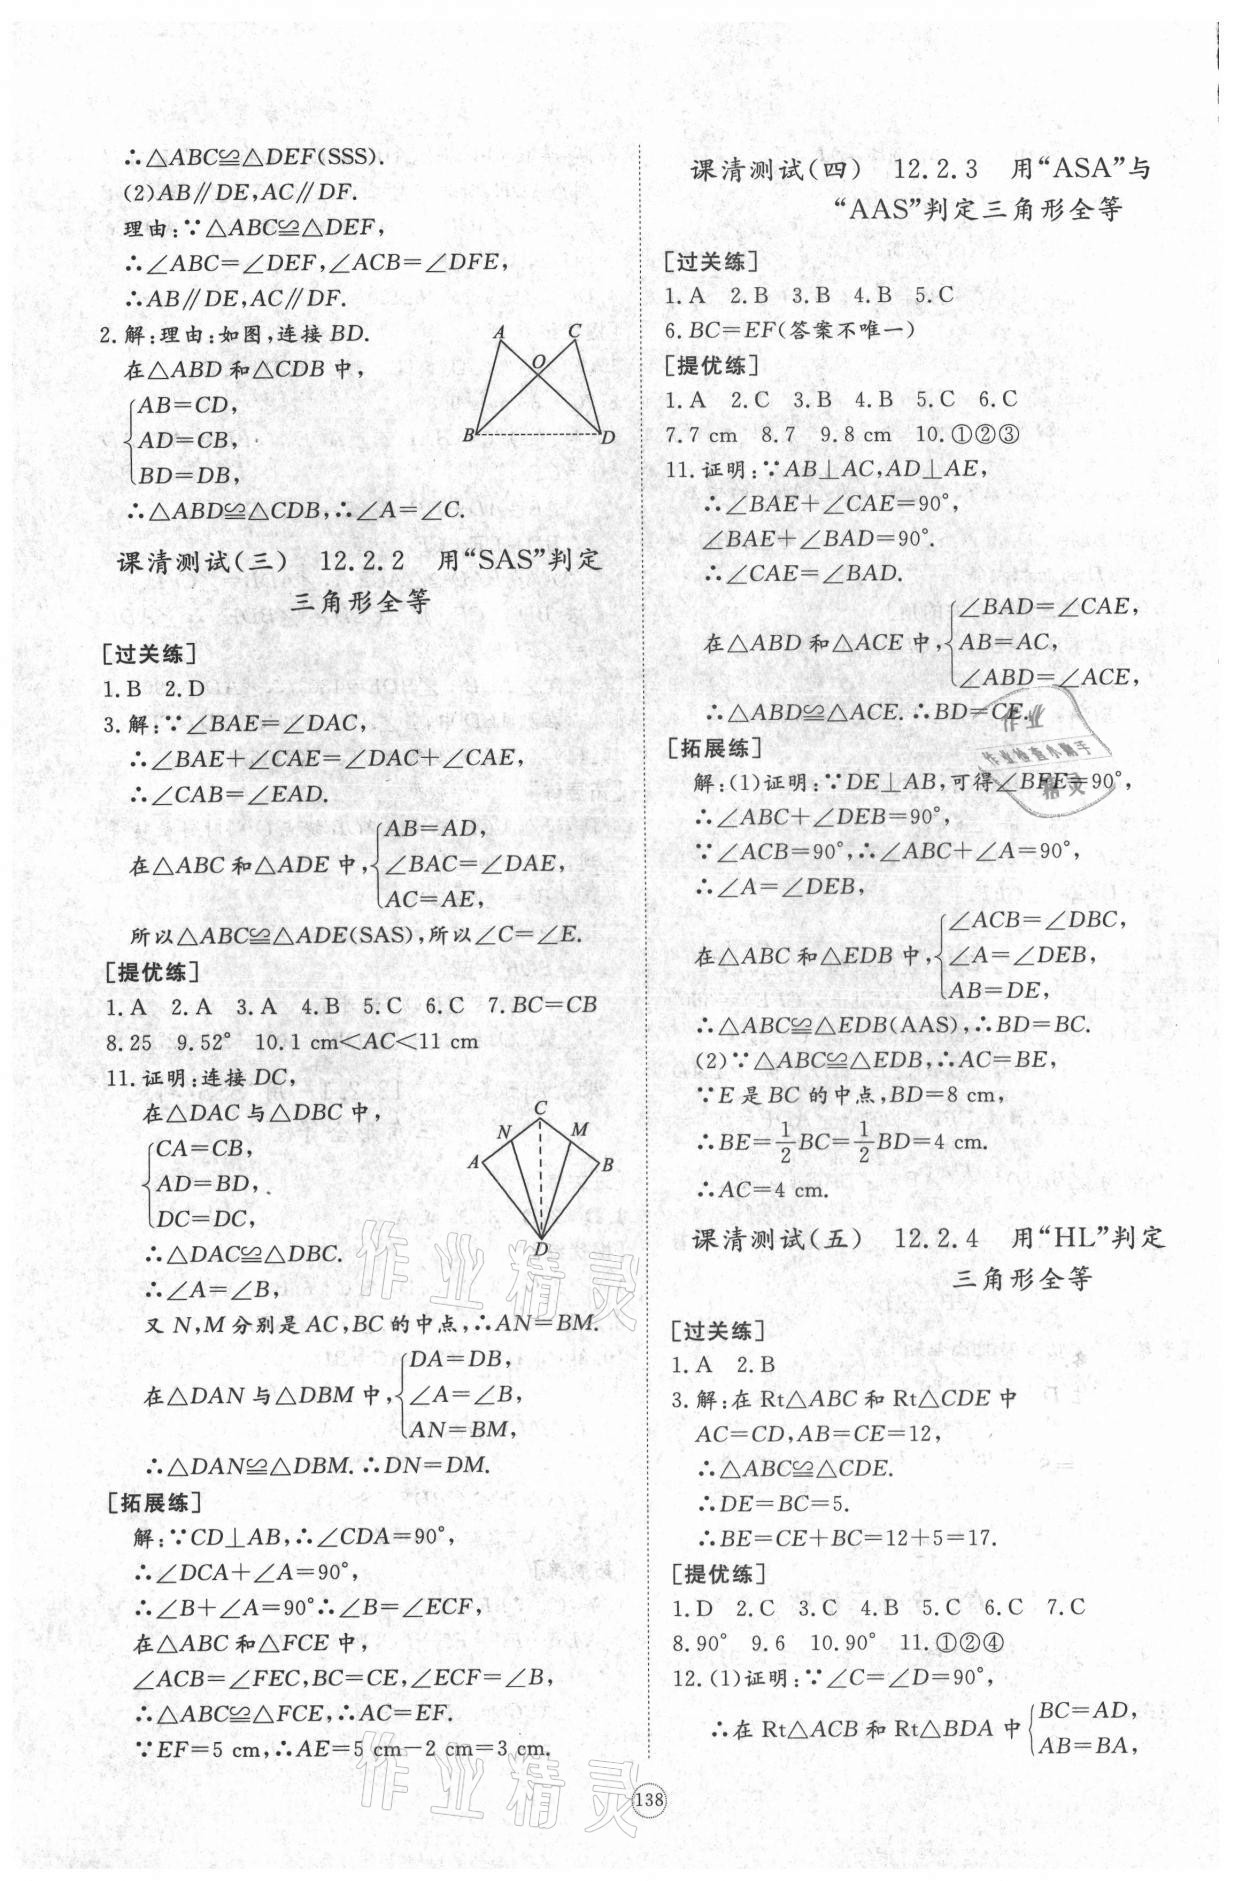 ∴△ABC≌△DEF(SSS).
(2)AB∥DE,AC∥DF.
理由:∵△ABC≌△DEF,
∴∠ABC=∠DEF,∠ACB=∠DFE,
∴AB∥DE,AC∥DF.
2.解:理由:如图,连接 BD.
在△ABD 和△CDB 中,
AB=CD,
AD=CB,
BD=DB,
A C
O
B D
∴△ABD≌△CDB,∴∠A=∠C.
课清测试(三) 12.2.2 用“SAS”判定
三角形全等
[过关练]
1.B 2.D
3.解:∵∠BAE=∠DAC,
∴∠BAE+∠CAE=∠DAC+∠CAE,
∴∠CAB=∠EAD.
在△ABC 和△ADE 中,{AB=AD,
∠BAC=∠DAE,
AC=AE,
所以△ABC≌△ADE(SAS),所以∠C=∠E.
[提优练]
1.A 2.A 3.A 4.B 5.C 6.C 7.BC=CB
8.25 9.52° 10.1 cm<AC<11 cm
11.证明:连接 DC,
在△DAC 与△DBC 中,
CA=CB,
AD=BD,
DC=DC,
C
N M
A B
D
∴△DAC≌△DBC.
∴∠A=∠B,
又 N,M 分别是 AC,BC 的中点,∴AN=BM.
在△DAN 与△DBM 中,{DA=DB,
∠A=∠B,
AN=BM,
∴△DAN≌△DBM.∴DN=DM.
[拓展练]
解:∵CD⊥AB,∴∠CDA=90°,
∴∠DCA+∠A=90°,
∴∠B+∠A=90°∴∠B=∠ECF,
在△ABC 和△FCE 中,
∠ACB=∠FEC,BC=CE,∠ECF=∠B,
∴△ABC≌△FCE,∴AC=EF.
∵EF=5 cm,∴AE=5 cm-2 cm=3 cm.
课清测试(四) 12.2.3 用“ASA”与
“AAS”判定三角形全等
[过关练]
1.A 2.B 3.B 4.B 5.C
6.BC=EF(答案不唯一)
[提优练]
1.A 2.C 3.B 4.B 5.C 6.C
7.7 cm 8.7 9.8 cm 10.①②③
11.证明:∵AB⊥AC,AD⊥AE,
∴∠BAE+∠CAE=90°,
∠BAE+∠BAD=90°.
∴∠CAE=∠BAD.
在△ABD 和△ACE 中,{∠BAD=∠CAE,
AB=AC,
∠ABD=∠ACE,
∴△ABD≌△ACE.∴BD=CE.
[拓展练]
解:(1)证明:∵DE⊥AB,可得∠BFE=90°,
∴∠ABC+∠DEB=90°,
∵∠ACB=90°,∴∠ABC+∠A=90°,
∴∠A=∠DEB,
在△ABC 和△EDB 中,{∠ACB=∠DBC,
∠A=∠DEB,
AB=DE,
∴△ABC≌△EDB(AAS),∴BD=BC.
(2)∵△ABC≌△EDB,∴AC=BE,
∵E 是 BC 的中点,BD=8 cm,
∴BE=1/2BC=1/2BD=4 cm.
∴AC=4 cm.
课清测试(五) 12.2.4 用“HL”判定
三角形全等
[过关练]
1.A 2.B
3.解:在 Rt△ABC 和 Rt△CDE 中
AC=CD,AB=CE=12,
∴△ABC≌△CDE.
∴DE=BC=5.
∴BE=CE+BC=12+5=17.
[提优练]
1.D 2.C 3.C 4.B 5.C 6.C 7.C
8.90° 9.6 10.90° 11.①②④
12.(1)证明:∵∠C=∠D=90°,
∴在 Rt△ACB 和 Rt△BDA 中{BC=AD,
AB=BA,
138
作业
作业检查小助手
精灵
作业精灵
作业精灵